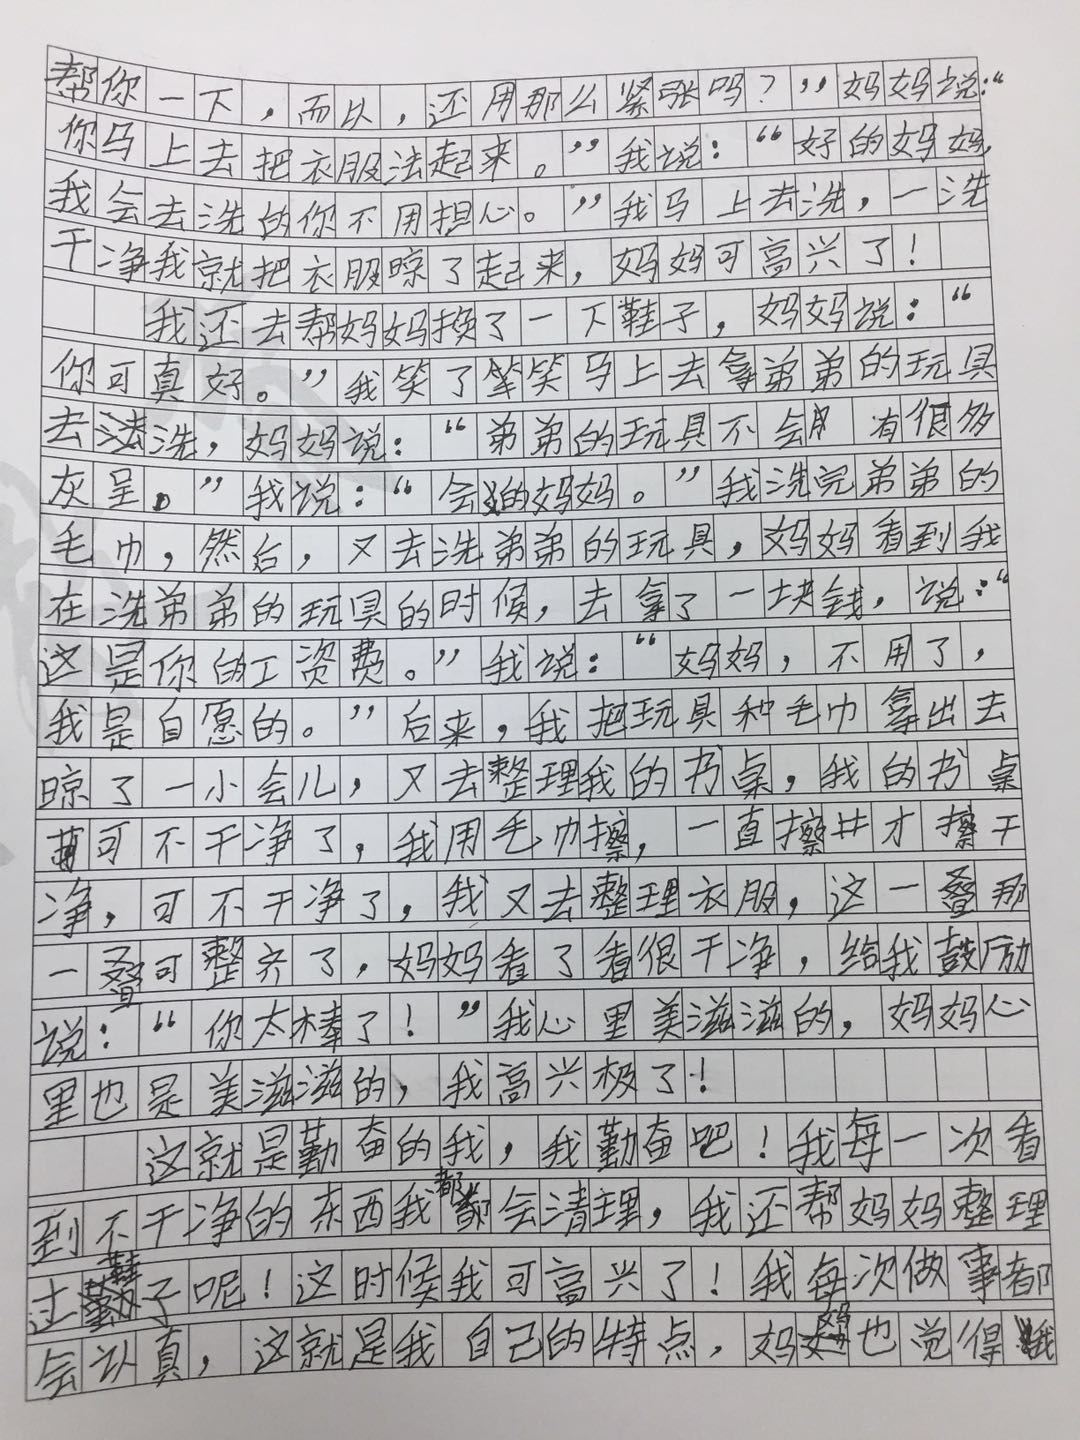 帮你一下，而以，还用那么紧张吗？”妈妈说：“
你马上去把衣服法起来。”我说：“好的妈妈，
我会去洗的你不用担心。”我马上去洗，一洗
干净我就把衣服晾了起来，妈妈可高兴了！
我还去帮妈妈换了一下鞋子，妈妈说：“
你可真好。”我笑了笑马上去拿弟弟的玩具
去洗，妈妈说：“弟弟的玩具不会有很多
灰呈。”我说：“会的妈妈。”我洗完弟弟的
毛巾，然后，又去洗弟弟的玩具，妈妈看到我
在洗弟弟的玩具的时候，去拿了一块钱，说：“
这是你的工资费。”我说：“妈妈，不用了，
我是自愿的。”后来，我把玩具和毛巾拿出去
晾了一小会儿，又去整理我的书桌，我的书桌
可不干净了，我用毛巾擦，一直擦才擦干
净，可不干净了，我又去整理衣服，这一叠那
一叠可整齐了，妈妈看了看很干净，给我鼓励
说：“你太棒了！”我心里美滋滋的，妈妈心
里也是美滋滋的，我高兴极了！
这就是勤奋的我，我勤奋吧！我每一次看
到不干净的东西我都会清理，我还帮妈妈整理
过鞋子呢！这时候我可高兴了！我每次做事都
会认真，这就是我自己的特点，妈妈也觉得我